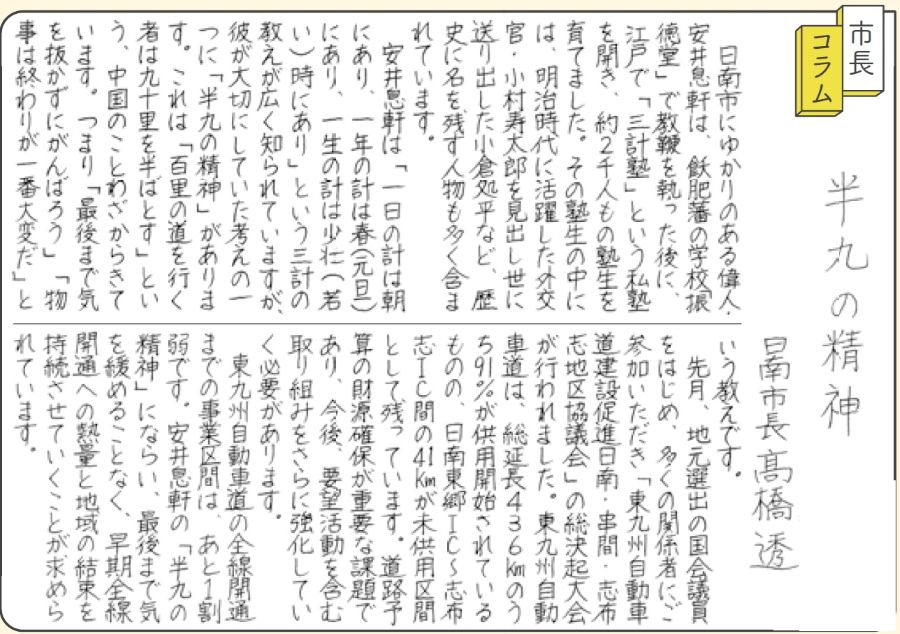 市長
コラム
半九の精神
日南市長 髙橋 透
日南市にゆかりのある偉人・
安井息軒は、飫肥藩の学校「振
徳堂」で教鞭を執った後に、
江戸で「三計塾」という私塾
を開き、約2千人もの塾生を
育てました。その塾生の中に
は、明治時代に活躍した外交
官・小村寿太郎を見出し世に
送り出した小倉処平など、歴
史に名を残す人物も多く含ま
れています。
安井息軒は「一日の計は朝
にあり、一年の計は春(元旦)
にあり、一生の計は少壮(若
い)時にあり」という三計の
教えが広く知られていますが、
彼が大切にしていた考えの一
つに「半九の精神」がありま
す。これは「百里の道を行く
者は九十里を半ばとす」とい
う、中国のことわざからきて
います。つまり「最後まで気
を抜かずにがんばろう」「物
事は終わりが一番大変だ」と
いう教えです。
先月、地元選出の国会議員
をはじめ、多くの関係者にご
参加いただき「東九州自動車
道建設促進日南・串間・志布
志地区協議会」の総決起大会
が行われました。東九州自動
車道は、総延長436㎞のう
ち91%が供用開始されている
ものの、日南東郷IC〜志布
志IC間の41㎞が未供用区間
として残っています。道路予
算の財源確保が重要な課題で
あり、今後、要望活動を含む
取り組みをさらに強化してい
く必要があります。
東九州自動車道の全線開通
までの事業区間は、あと1割
弱です。安井息軒の「半九の
精神」にならい、最後まで気
を緩めることなく、早期全線
開通への熱量と地域の結束を
持続させていくことが求めら
れています。